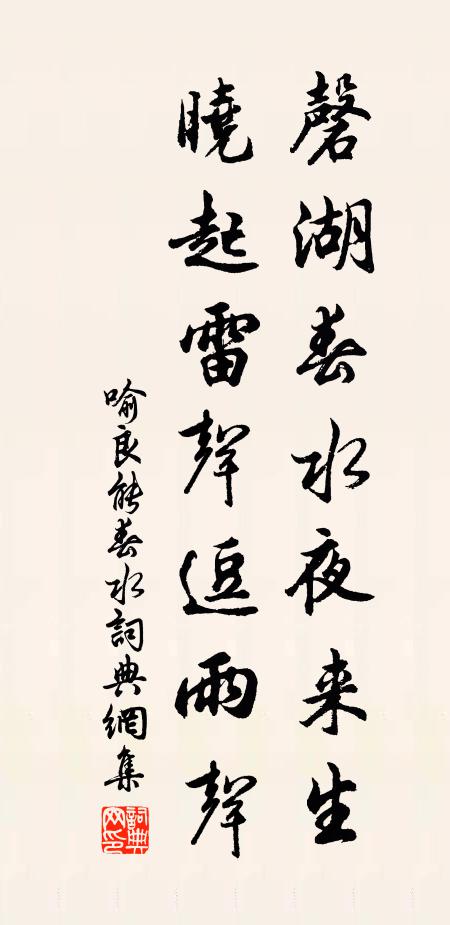 磬湖春水夜来生
曉起雷聲逗雨聲
喻良能春水詞典網集
詞典网印